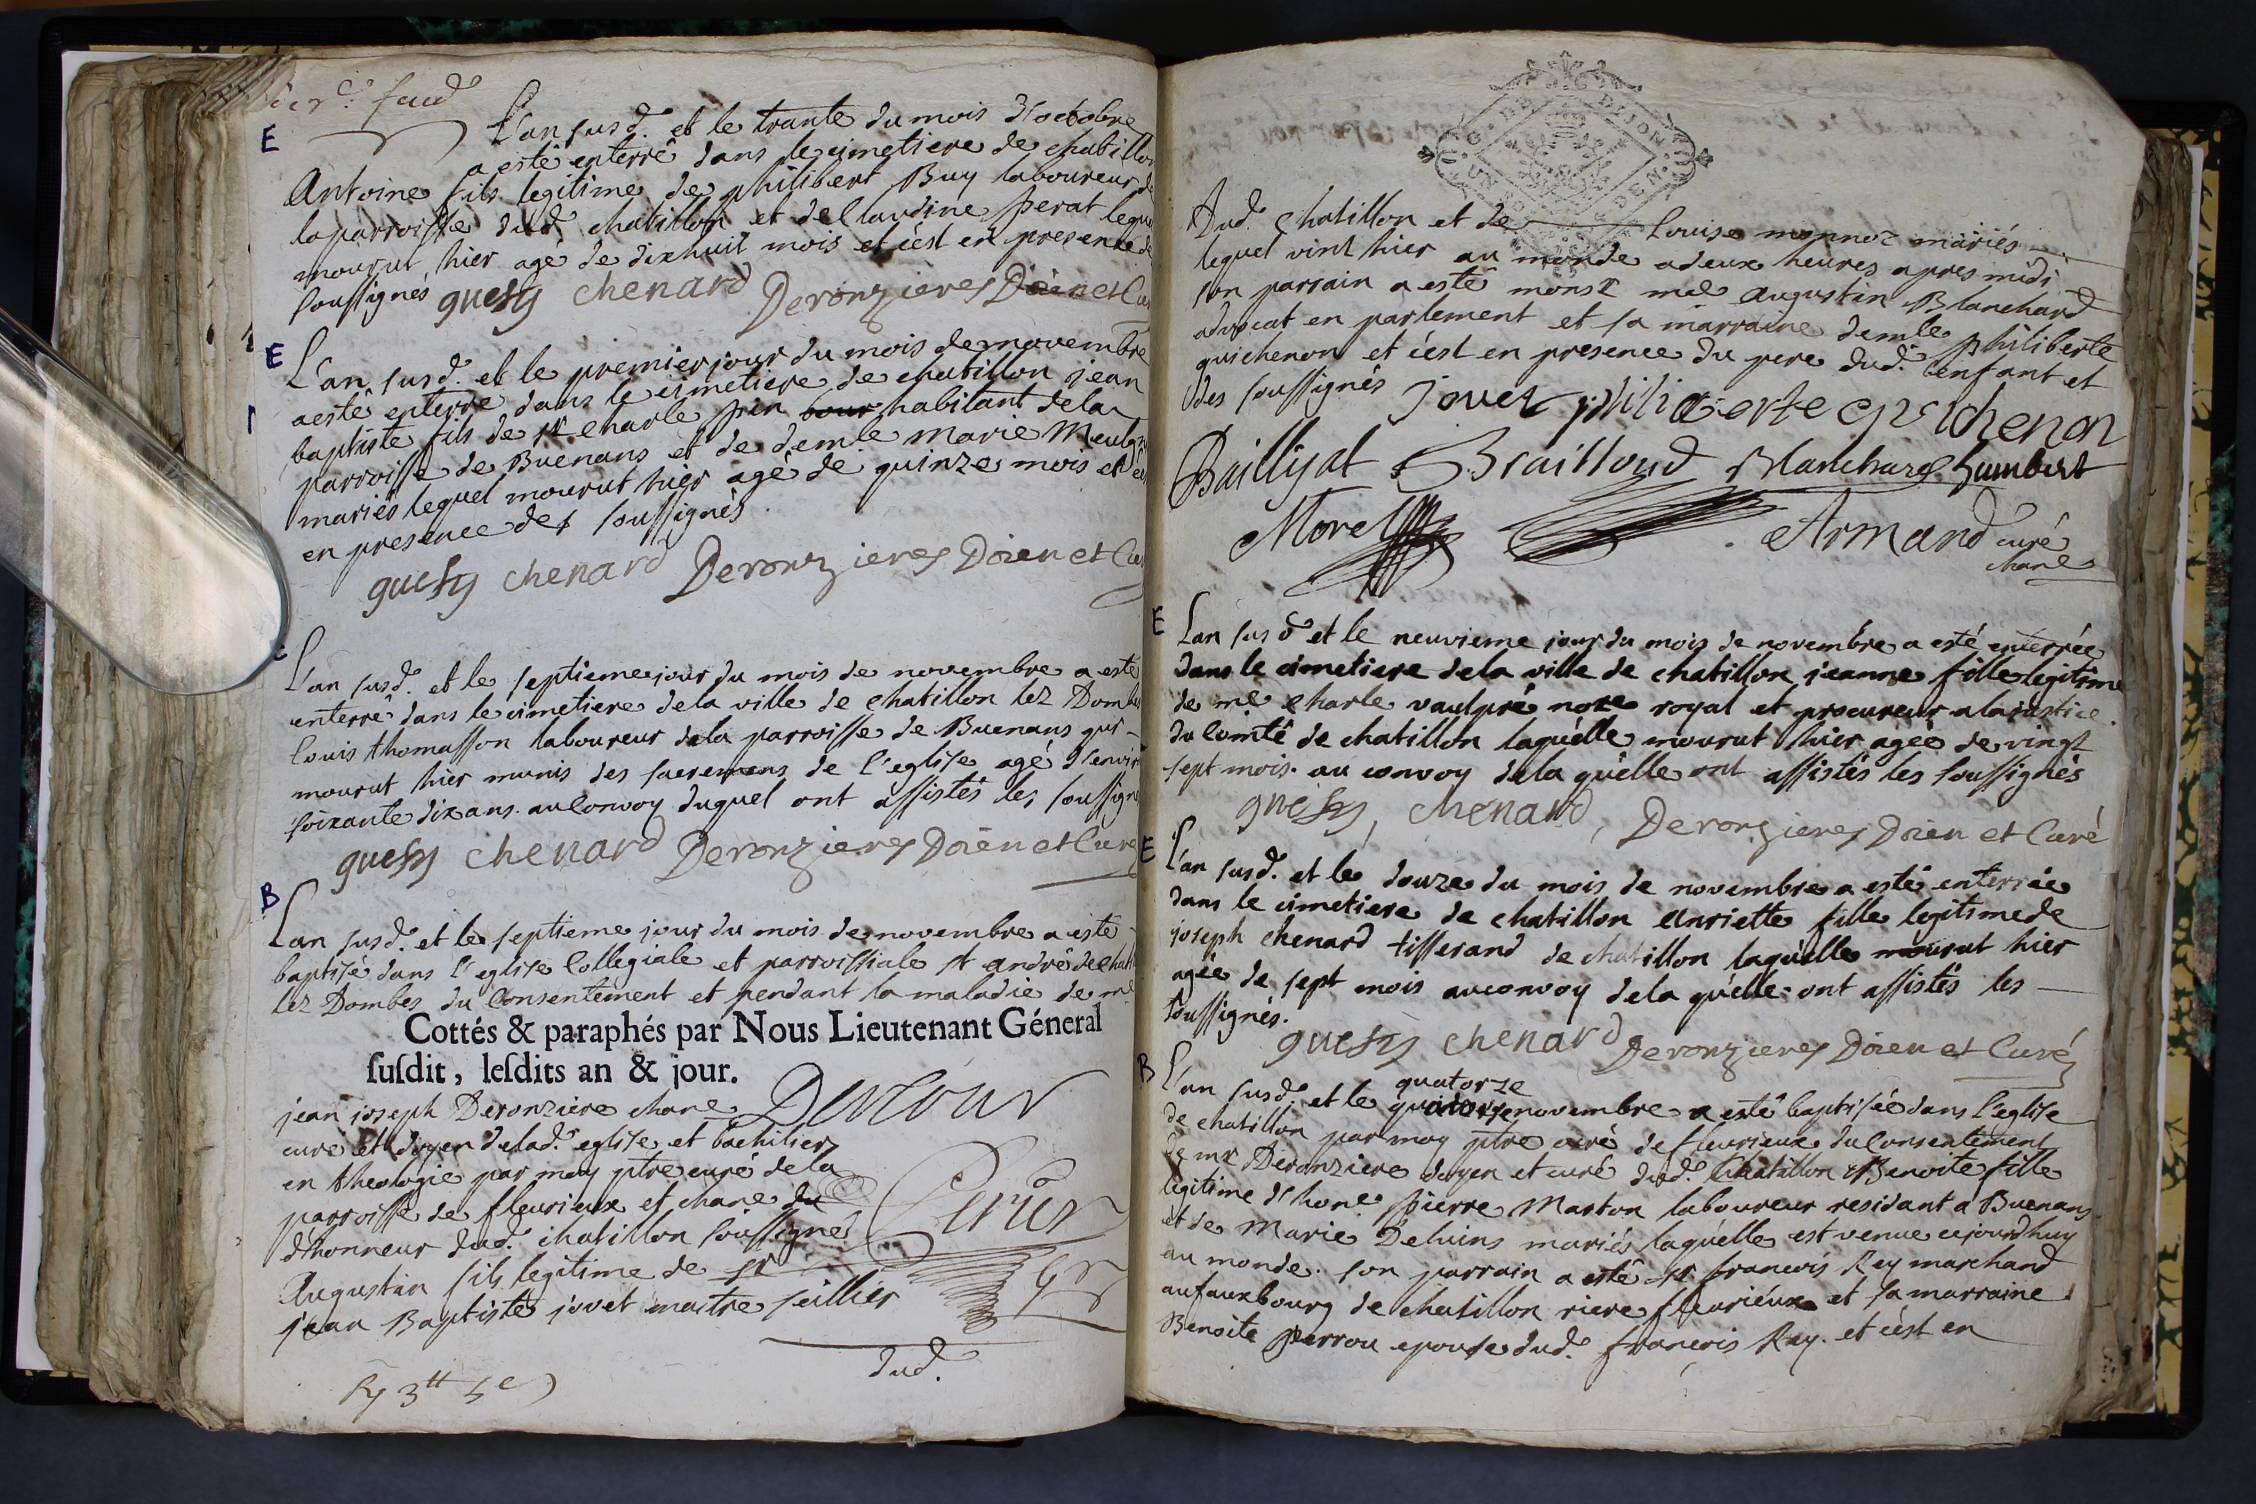 E
L'an susd. et le trante du mois d'octobre
a esté enterré dans le cimetiere de chatillon
Antoine fils legitime de philibert Buy laboureur de
la parroisse dud. chatillon et de Claudine perat lequel
mourut hier agé de dixhuit mois et c'est en presence de
soussignés guesy chenard Deronzieres Doien et Cu
E
L'an susd. et le premier jour du mois de novembre
a esté enterré dans le cimetiere de chatillon jean
baptiste fils de sr charle pin habitant de la
parroisse de Buenans et de demle Marie
mariés lequel mourut hier agé de quinze mois et c'es
en presence des soussignés
guesy chenard Deronzieres Doien et Cu
L'an susd. et le septieme jour du mois de novembre a esté
enterré dans le cimetiere de la ville de chatillon lez Dombes
Louis thomasson laboureur de la parroisse de Buenans qui
mourut hier munis des sacremens de l'eglise agé d'enviro
soixante dix ans. au Convoy duquel ont assistés les soussignés
guesy chenard Deronzieres Doien et Curé
B
L'an susd. et le septieme jour du mois de novembre a esté
baptisé dans l'eglise Collegiale et parroissiale st andré de chat
lez Dombes du Consentement et pendant la maladie de me
Cottés & paraphés par Nous Lieutenant Géneral
susdit, lesdits an & jour.
jean joseph Deronziere chane
curé et doyen de lad. eglise et bachilier
en theologie par moy ptre curé de la
parroisse de fleurieux et chane du
d'honneur dud. chatillon soussigné
Augustin fils legitime de sr
jean Baptiste jovet maitre seillier
dud.
Dud. chatillon et de Louise monnoz mariés
lequel vint hier au monde a deux heures apres midi
son parrain a esté monsr me augustin Blanchard
advocat en parlement et sa marraine demle philiberte
guichenon et c'est en presence du pere dud. enfant et
des soussignés jovet philiberte guichenon
Baillyat Brailloud Blanchard humbert
Morel Armand curé
chane
E
L'an susd et le neuvieme jour du mois de novembre a esté enterrée
dans le cimetiere de la ville de chatillon jeanne fille legitime
de me charle vaulpré nore royal et procureur a la justice
du Comté de chatillon laquelle mourut hier agée de vingt
sept mois. au convoy de la quelle ont assistés les soussignés
guesy, chenard, Deronzieres Doien et Curé
E
L'an susd. et le douze du mois de novembre a esté enterrée
dans le cimetiere de chatillon anriette fille legitime de
joseph chenard tisserand de chatillon laquelle mourut hier
agée de sept mois au convoy de la quelle ont assistés les
soussignés.
guesy chenard Deronzieres Doien et Curé
B
quatorze
L'an susd. et le novembre a esté baptisée dans l'eglise
de chatillon par moy ptre curé de fleurieux du Consentement
de mr Deronziere doyen et curé dud. Chatillon Benoite fille
legitime d'hone pierre Marton laboureur residant a Buenans
et de Marie Deluins mariés laquelle est venue aujourdhuy
au monde. son parrain a esté sr francois Rey marchand
au fauxbourg de chatillon riere fleurieux et sa marraine
Benoite perrou epouse dud. francois Rey. et c'est en